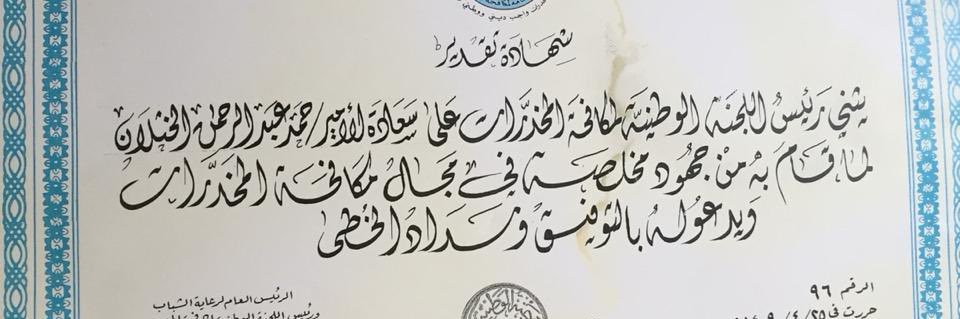 المخدرات واجب ديني ووطني
شهادة تقدير
يثني رئيس اللجنة الوطنية لمكافحة المخدرات على سعادة الأمير/حمد عبد الرحمن الخثلان
لما قام به من جهود مخلصة في مجال مكافحة المخدرات
ويدعو له بالتوفيق وسداد الخطى
الرقم ٩٦
حررت في ٢٥/٤/
الرئيس العام لرعاية الشباب
ورئيس اللجنة الوطنية